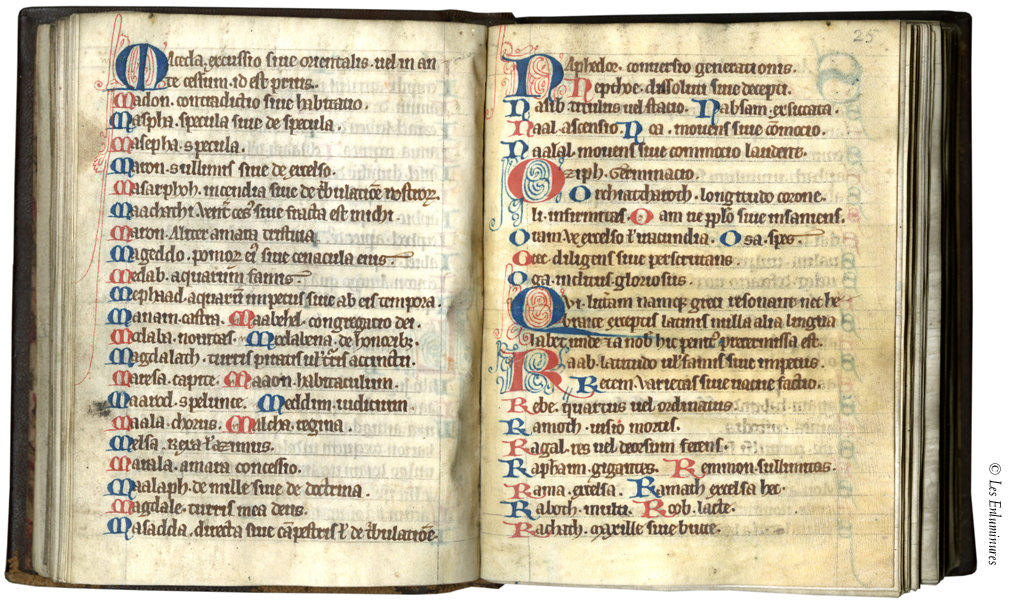 Maceda. excussio siue orientalis. uel in an
te cessum. id est prius.
Madon. contradictio siue habitatio.
Maspha. specula siue de specula.
Masepha. specula.
Maron. sullimis siue de excelso.
Maachathi.
siue fracta est michi.
Maron. Aliter amara tristitia
Mageddo. pomorum
siue cenacula eius
Medab. aquarum famis
Mephaad. aquarum impetus siue ab eis tempora.
Manaim. castra. Maalehel. congregatio dei.
nouitas. Medalena. de honoribus
Magdalath. turris
Maresa. capite. Maaon. habitaculum.
Maarod. spelunce. Meddim. iudicium.
Maala. chorus. Milcha. regina.
Melsa. rixa
azimus.
Marala. amara concessio.
Maalaph. de mille siue de doctrina.
Magdale. turris mea deus.
Masadda. directa siue
25
Naphedor. conuersio generationis.
Nepthoe. dissoluit siue decepit.
Nasib. titulus uel statio. Nabsam. exsiccata.
Naal. ascensio. Noa. mouens siue commocio.
Naalal. mouens siue commocio laudente.
Oziph. Germinatio.
longitudo corone.
Oli. infirmitas. Oam
siue insaniens.
Otam. Ve excelso
iracundia. Osa. spes
Oze. diligens siue perscrutans.
Oga. inclitus gloriosus.
Qui. litteram namque greci resonant nec he
breice exceptis latinis nulla alia lingua
habet unde
nobis hic penitus pretermissa est.
Raab. latitudo uel famis siue impetus.
Recem. Varietas siue uacue factio.
Rebe. quartus uel ordinatus.
Ramoth. uisio mortis.
Ragal. pes uel deorsum ferens.
Raphaim. gigantes. Remmon. sullimitas.
Rama. excelsa. Ramath excelsa hec.
Raboth. multa. Roob. late.
Rachath. maxille siue
© Les Enluminures